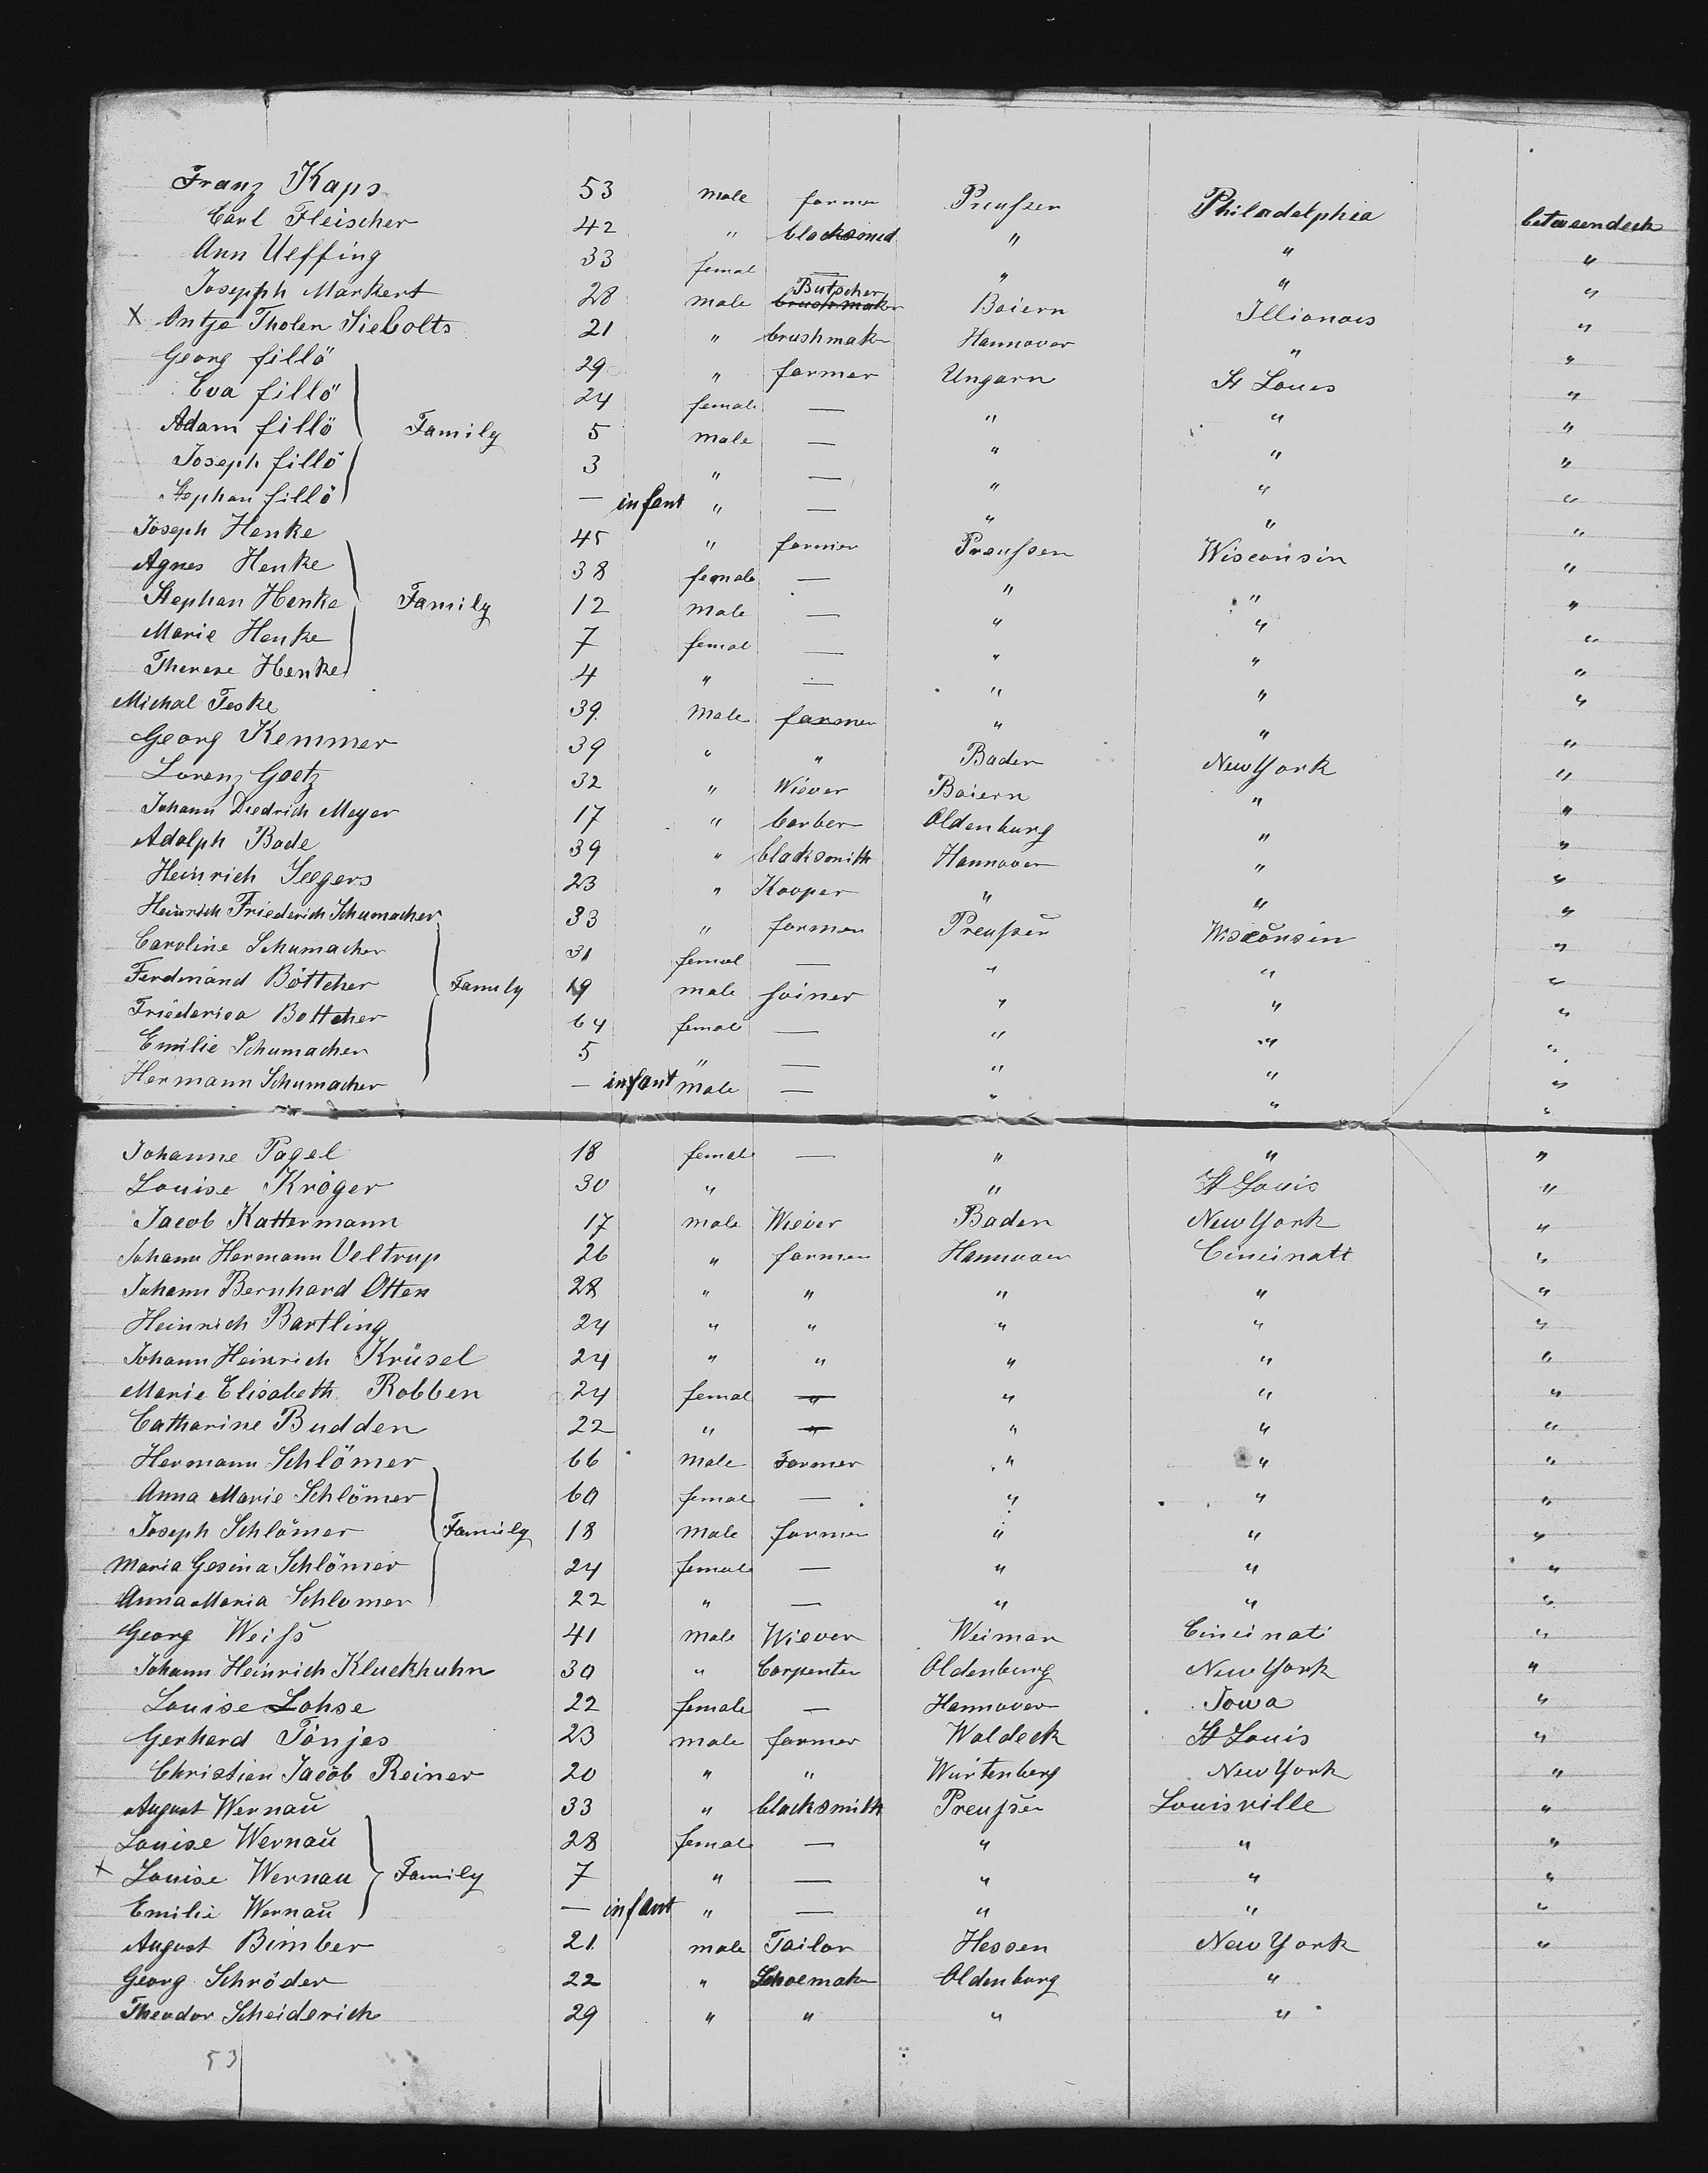 Franz Kaps 53 male farmer Preußen Philadelphia betweendeck
Carl Fleischer 42 " blacksmed " " "
Ann Ueffing 33 femal — " " "
Joseph Markert 28 male Butscher brushmaker Baiern Illionois "
X Antje Tholen Siebolts 21 " brushmaker Hannover " "
Georg fillö 29 " farmer Ungarn St Louis "
Eva fillö 24 female — " " "
Adam fillö Family 5 male — " " "
Joseph fillö 3 " — " " "
Stephan fillö — infant " — " " "
Joseph Henke 45 " farmer Preußen Wisconsin "
Agnes Henke 38 female — " " "
Stephan Henke Family 12 male — " " "
Marie Henke 7 femal — " " "
Therese Henke 4 " — " " "
Michal Teske 39 male farmer " " "
Georg Kemmer 39 " " Baden New York "
Lorenz Goetz 32 " Wiever Baiern " "
Johann Diedrich Meyer 17 " barber Oldenburg " "
Adolph Bode 39 " blacksmith Hannover " "
Heinrich Seegers 23 " Kooper " " "
Heinrich Friederich Schumacher 33 " farmer Preußen Wisconsin "
Caroline Schumacher 31 femal — " " "
Ferdinand Böttcher Family 19 male joiner " " "
Friederica Bottcher 64 female — " " "
Emilie Schumacher 5 " — " " "
Hermann Schumacher — infant male — " " "
Johanne Pagel 18 female — " " "
Louise Kröger 30 " " St Louis "
Jacob Kattermann 17 male Wiever Baden New York "
Johann Hermann Veltrup 26 " farmer Hannover Cincinatt "
Johann Bernhard Otten 28 " " " " "
Heinrich Bartling 24 " " " " "
Johann Heinrich Krüsel 24 " " " " "
Marie Elisabeth Robben 24 femal — " " "
Catharine Budden 22 " — " " "
Hermann Schlömer 66 male Farmer " " "
Anna Marie Schlömer 60 femal — " " "
Joseph Schlömer Family 18 male farmer " " "
Maria Gesina Schlömer 24 female — " " "
Anna Maria Schlomer 22 " — " " "
Georg Weiß 41 male Wiever Weimar Cincinati "
Johann Heinrich Kluckhuhn 30 " Carpenter Oldenburg New York "
Louise Lohse 22 female — Hannover Iowa "
Gerhard Tönjes 23 male farmer Waldeck St Louis "
Christian Jacob Reiner 20 " " Würtenberg New York "
August Wernau 33 " blacksmith Preußen Louisville "
Louise Wernau 28 female — " " "
X Louise Wernau Family 7 " — " " "
Emilie Wernau — infant " — " " "
August Bimber 21 male Tailor Hessen New York "
Georg Schröder 22 " Schoemaker Oldenburg "
Theodor Scheiderich 29 " " " "
53